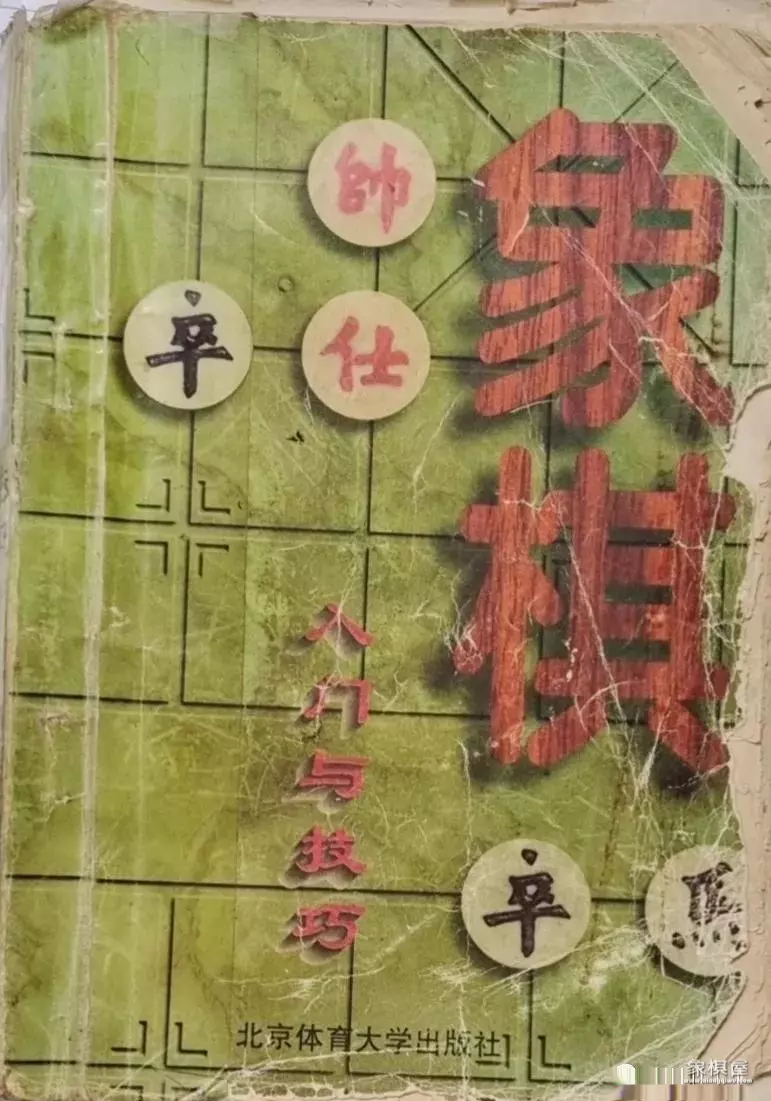 象棋
入门与技巧
帥
卒
仕
卒
馬
北京体育大学出版社
象棋屋